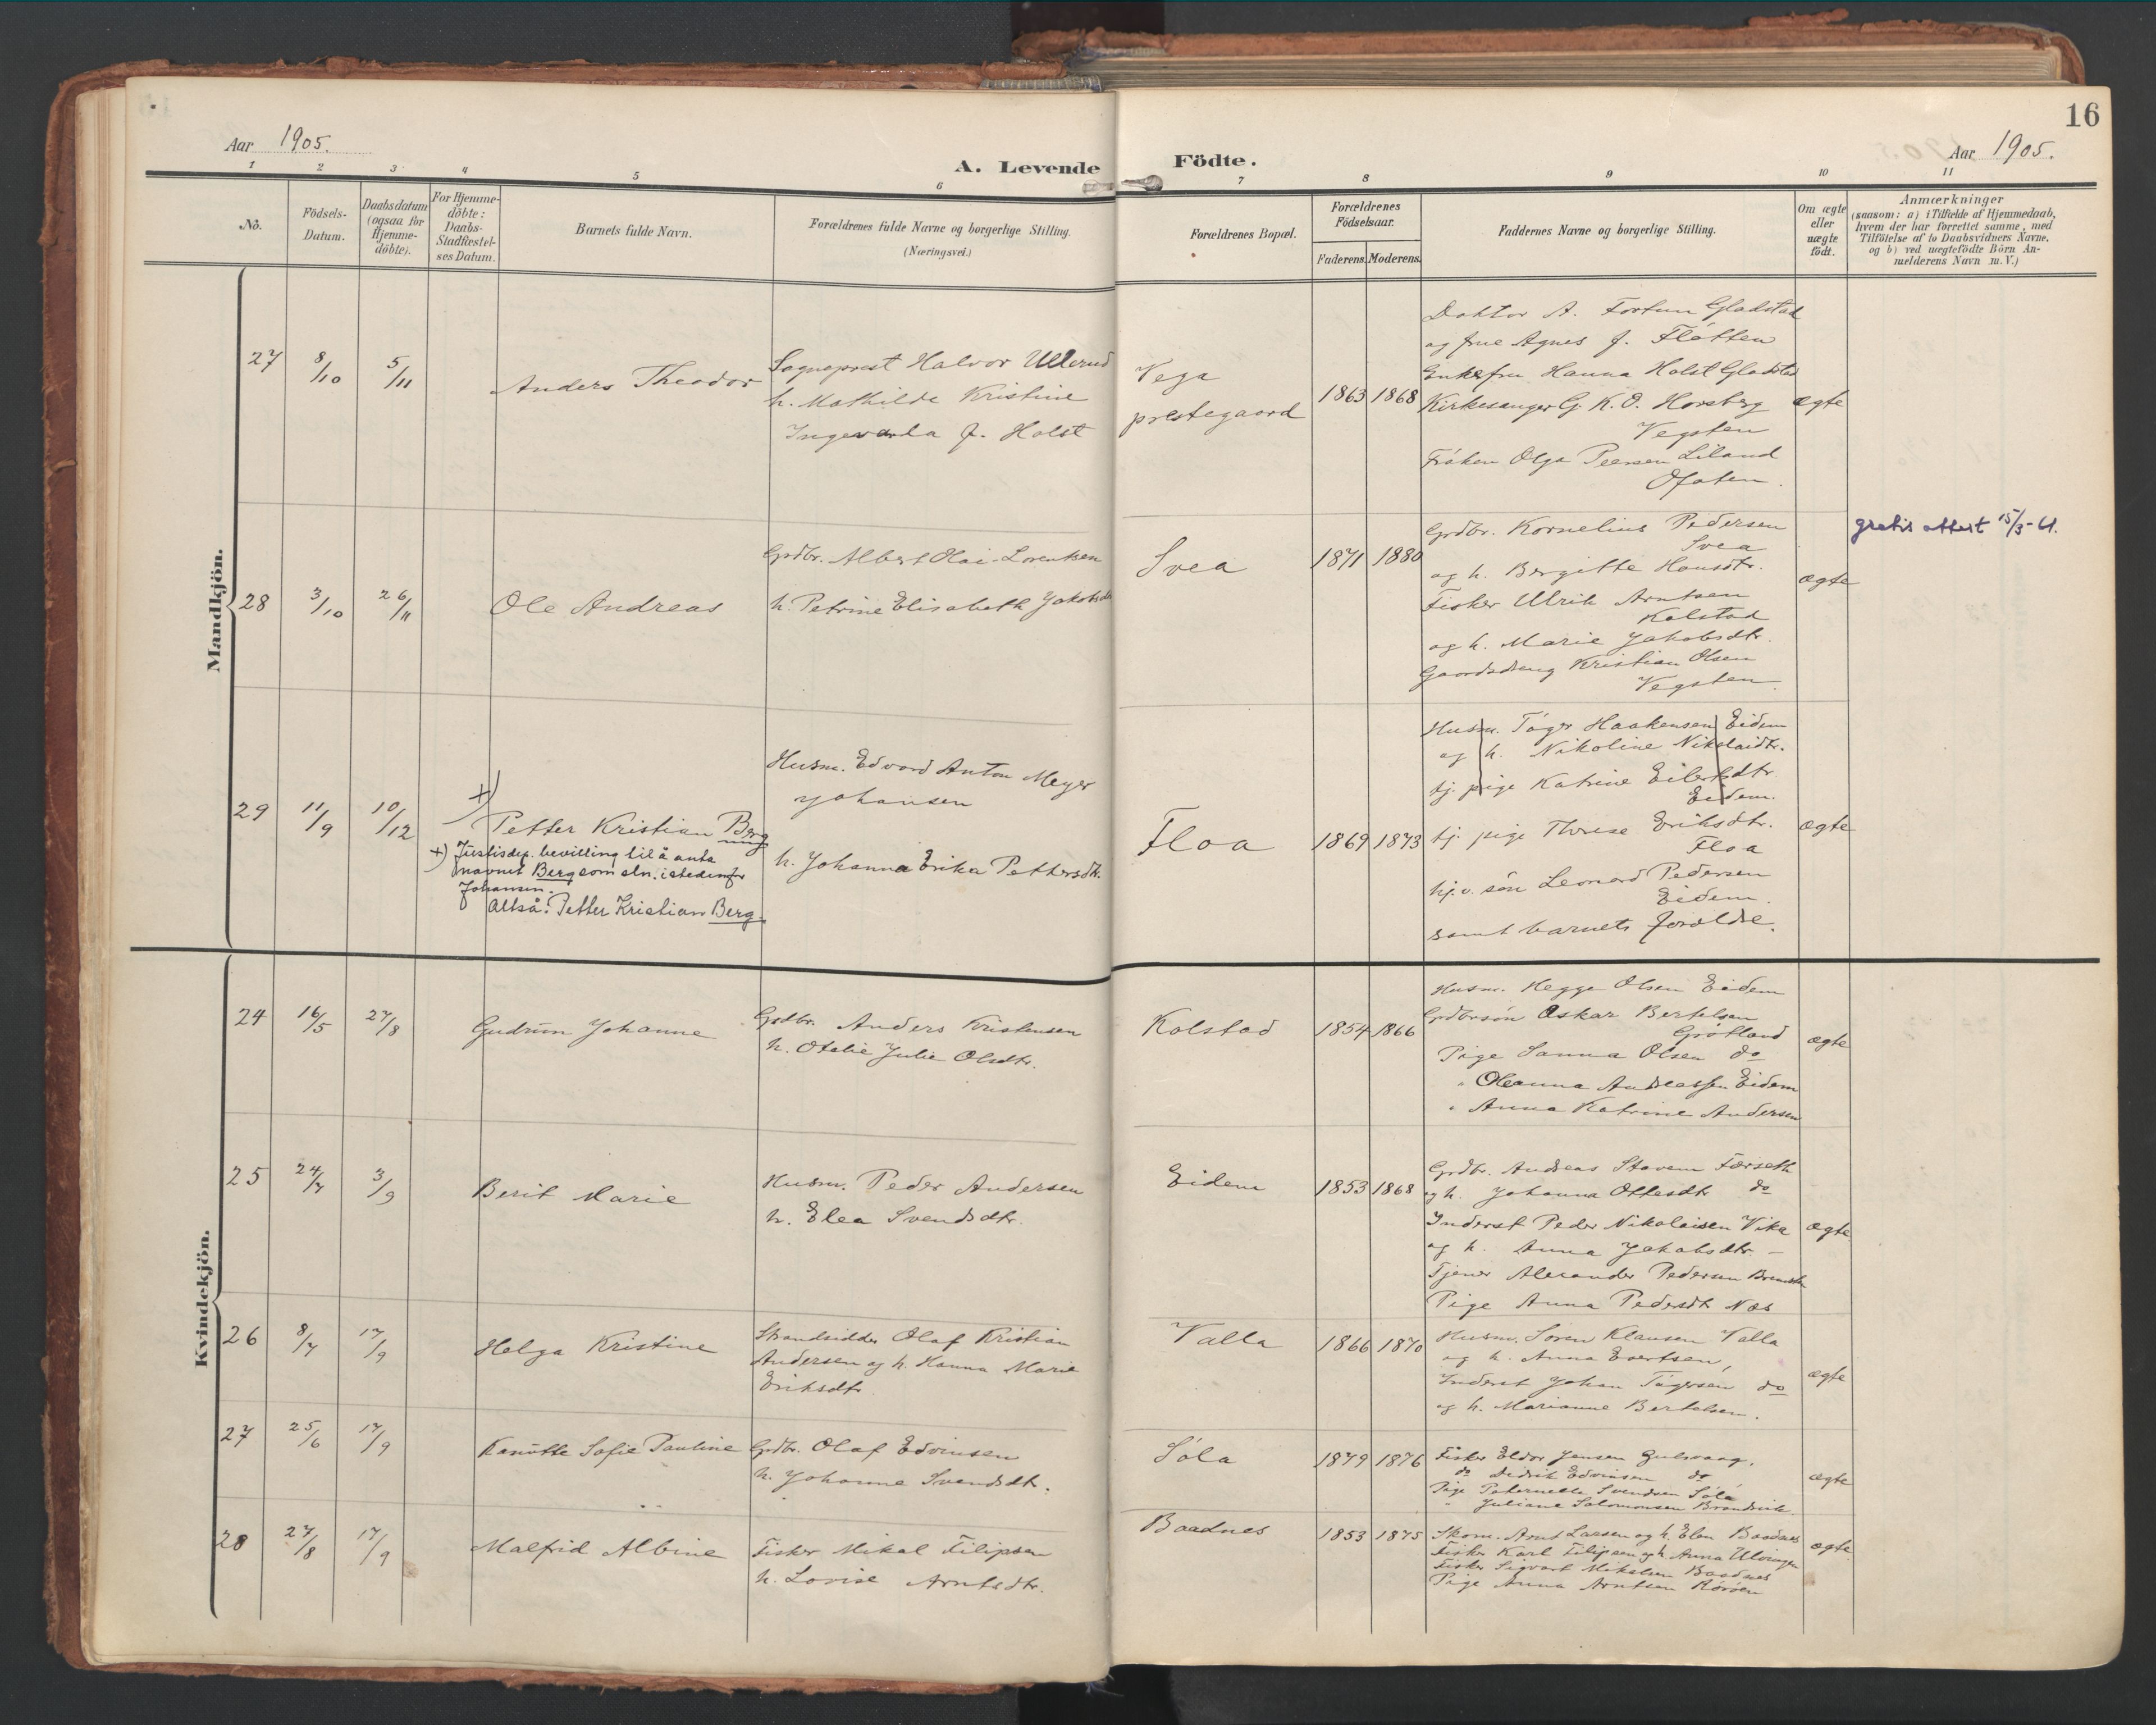 16
Aar 1905.
A. Levende Födte.
Aar 1905.
1 2 3 4 5 6 7 8 9 10 11
No.
Födsels-
Datum.
Daabsdatum
(ogsaa for
Hjemme-
döbte).
For Hjemme-
döbte:
Daabs-
Stadfæstel-
ses Datum.
Barnets fulde Navn.
Forældrenes fulde Navne og borgerlige Stilling.
(Næringsvei.)
Forældrenes Bopæl.
Forældrenes
Födselsaar.
Faderens. Moderens.
Faddernes Navne og borgerlige Stilling.
Om ægte
eller
uægte
födt.
Anmærkninger
(saasom: a) i Tilfælde af Hjemmedaab,
hvem der har forrettet samme, med
Tilföielse af to Daabsvidners Navne,
og b) ved uægtefödte Börn An-
melderens Navn m. V.)
Mandkjön.
27 8/10 5/11 Anders Theodor
Sogneprest Halvor Ullerud
h. Mathilde Kristine
Ingevarda f. Holst
Vega
prestegaard
1863 1868
Doktor A. Fortun Gladstad
og frue Agnes f. Flötten
Enkefru Hanna Holst Gladstad
Kirkesanger G. K. O. Horsberg
Vegsten
Fröken Olga Peersen Liland
Ofoten.
ægte
28 3/10 26/11 Ole Andreas
Grdbr. Albert Olai Lorentsen
h. Petrine Elisabeth Jakobsdtr
Svea
1871 1880
Grdbr. Kornelius Pedersen
Svea
og h. Bergitte Hansdtr.
Fisker Ulrik Arntsen
Kolstad
og h. Marie Jakobsdtr.
Gaardsdreng Kristian Olsen
Vegsten.
ægte
gratis attest 15/3-61.
29 11/9 10/12
+)
Petter Kristian Berg
+) Justisdep. bevilling til å anta
navnet Berg som eln. istedenfor
Johansen.
Altså: Petter Kristian Berg.
Husm. Edvard Anton Meyer
Johansen
h. Johanna Erika Pettersdtr.
Floa
1869 1873
Husm. Töger Haakensen Eidem
og h. Nikoline Nikolaidtr.
tj. pige Katrine Eilertsdtr.
Eidem.
tj. pige Therese Eriksdtr.
Floa
hj.v. sön Leonard Pedersen
Eidem.
samt barnets foreldre.
ægte
Kvindekjön.
24 16/5 27/8 Gudrun Johanne
Grdbr. Anders Kristensen
h. Otelie Julie Olsdtr.
Kolstad
1854 1866
Husm. Hegge Olsen Eidem
Grdbrsön Oskar Bertelsen
Grötland
Pige Sanna Olsen do
" Oleanna Andreassen Eidem
" Anna Katrine Andersen
ægte
25 24/7 3/9 Berit Marie
Husm. Peder Andersen
h. Elea Svendsdtr.
Eidem
1853 1868
Grdbr. Andreas Stavem Færseth
og h. Johanna Ottesdtr do
Inderst Peder Nikolaisen Vika
og h. Anna Jakobsdtr. -
Tjener Alexander Pedersen
Pige Anna Pedersdtr Nes
ægte
26 8/7 17/9 Helga Kristine
Strandsidder Olaf Kristian
Andersen og h. Hanna Marie
Eriksdtr.
Valla
1866 1870
Husm. Sören Klausen Valla
og h. Anna Evertsen,
Inderst Johan Tögersen do
og h. Marianne Bertelsen.
ægte
27 25/6 17/9 Kanutte Sofie Pauline
Grdbr. Olaf Edvinsen
h. Johanne Svendsdtr.
Sóla
1879 1876
Fisker Eldor Jensen Gulsvaag.
do Didrik Edvinsen do
Pige Peternelle Svendsen Sóla
" Juliane Salomonsen
ægte
28 27/8 17/9 Malfrid Albine
Fisker Mikal Filipsen
h. Lovise Arntsdtr.
Baadnes
1853 1875
Skom. Arnt Larsen og h. Elen Baadnes
Fisker Karl Filipsen og h. Anna Ulvingen
Fisker Sigvart Mikalsen Baadnes
Pige Anna Arntsen Rörøen
ægte.